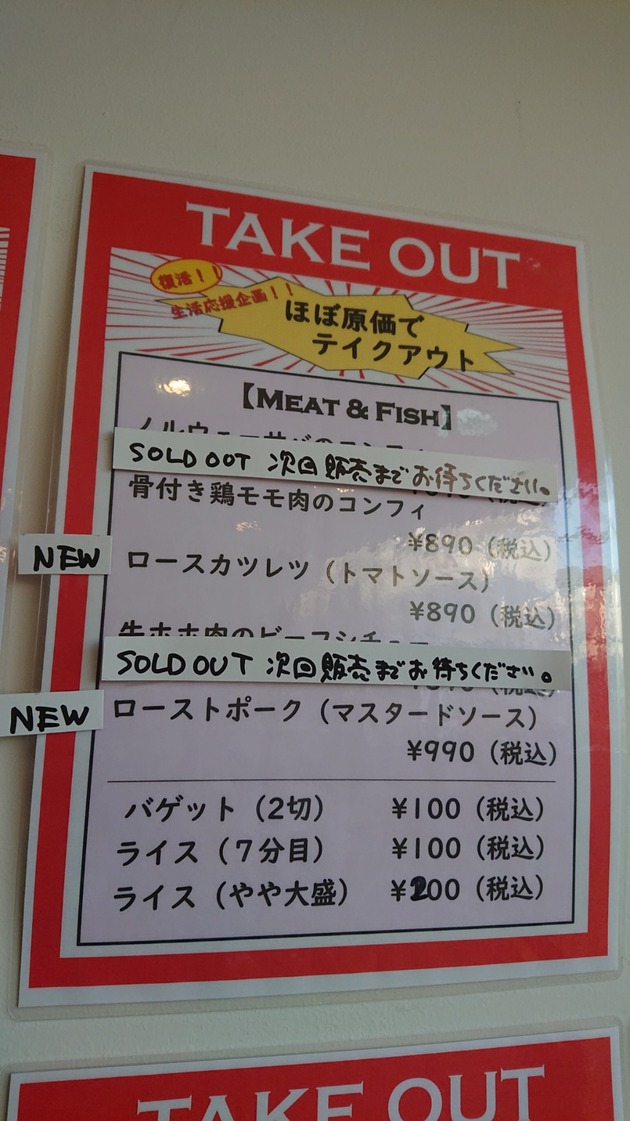 TAKE OUT
復活！！
生活応援企画！！
ほぼ原価で
テイクアウト
【MEAT & FISH】
SOLD OUT 次回販売までお待ちください。
骨付き鶏モモ肉のコンフィ
¥890（税込）
NEW
ロースカツレツ（トマトソース）
¥890（税込）
牛ホホ肉のビーフシチュー
SOLD OUT 次回販売までお待ちください。
NEW
ローストポーク（マスタードソース）
¥990（税込）
バゲット（2切） ¥100（税込）
ライス（7分目） ¥100（税込）
ライス（やや大盛） ¥200（税込）
TAKE OUT